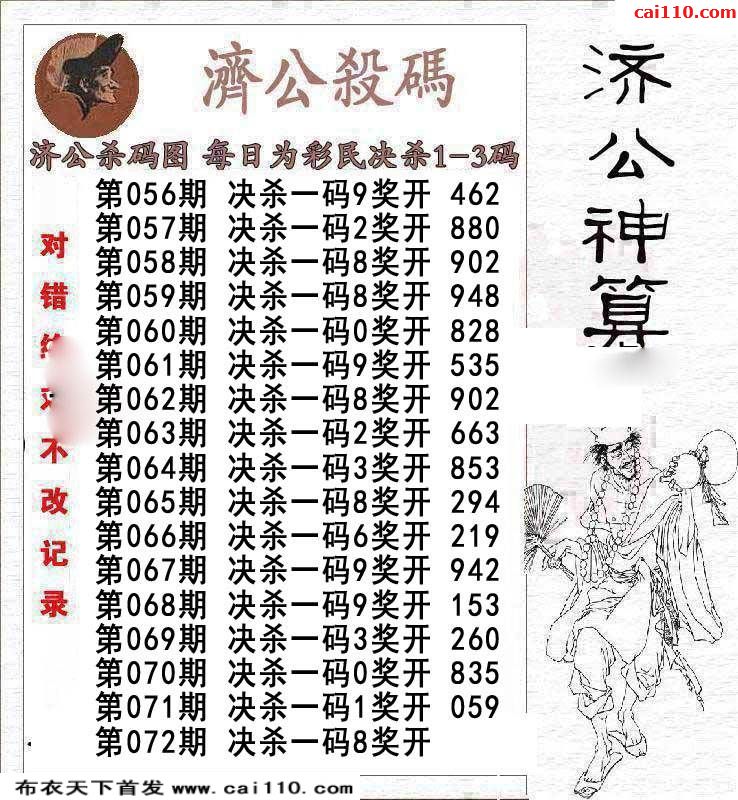 cai110.com
濟公殺碼
济公杀码图 每日为彩民决杀1-3码
第056期 决杀一码9奖开 462
第057期 决杀一码2奖开 880
第058期 决杀一码8奖开 902
第059期 决杀一码8奖开 948
第060期 决杀一码0奖开 828
第061期 决杀一码9奖开 535
第062期 决杀一码8奖开 902
第063期 决杀一码2奖开 663
第064期 决杀一码3奖开 853
第065期 决杀一码8奖开 294
第066期 决杀一码6奖开 219
第067期 决杀一码9奖开 942
第068期 决杀一码9奖开 153
第069期 决杀一码3奖开 260
第070期 决杀一码0奖开 835
第071期 决杀一码1奖开 059
第072期 决杀一码8奖开
对错绝对不改记录
济公神算
布衣天下首发 www.cai110.com